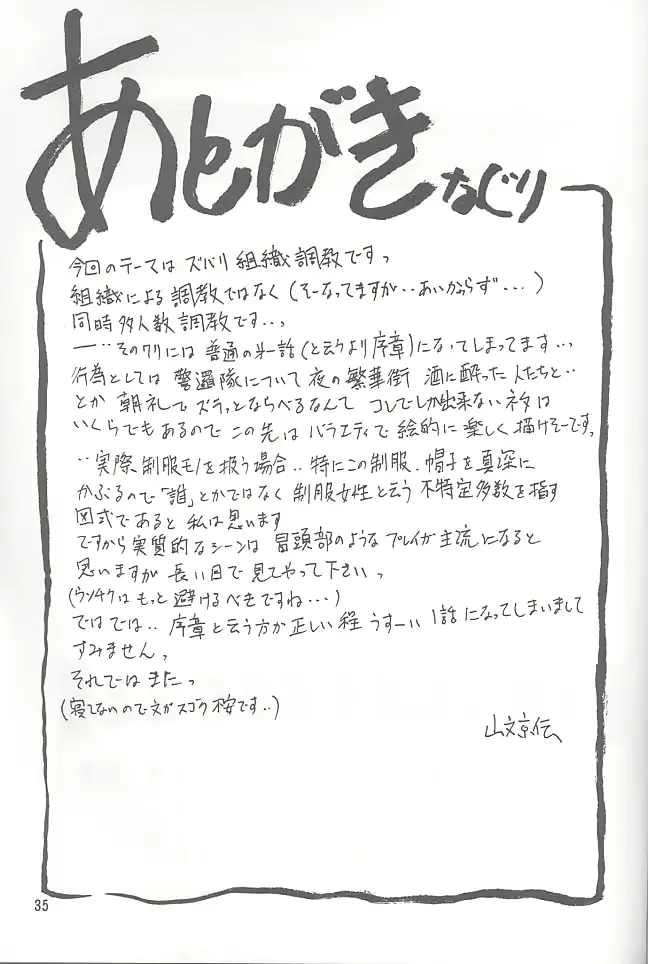 あとがき なぐり
今回のテーマは ズバリ 組織調教ですっ
組織による調教ではなく(そーなってますが‥あいかわらず…)
同時多人数調教です‥っ
一‥そのワリには 普通の第一話(と云うより序章)になってしまってます…っ
行為としては 警邏隊について夜の繁華街 酒に酔った人たちと‥
とか 朝礼で ズラッとならべるなんて コレでしか出来ないネタは
いくらでもあるので この先は バラエティで絵的に楽しく描けそーですっ
‥実際、制服モノを扱う場合‥特にこの制服、帽子を真深に
かぶるので「誰」とかではなく 制服女性と云う 不特定多数を指す
図式であると 私は思います
ですから実質的なシーンは 冒頭部のようなプレイが主流になると
思いますが 長い目で見てやって下さいっ
(ウンチクは もっと 避けるべきですね…)
ではでは‥ 序章と云う方が正しい程 うすーい 1話になってしまいまして
すみませんっ
それでは またっ
(寝てないので文がスゴク不安です‥)
山文京伝
35